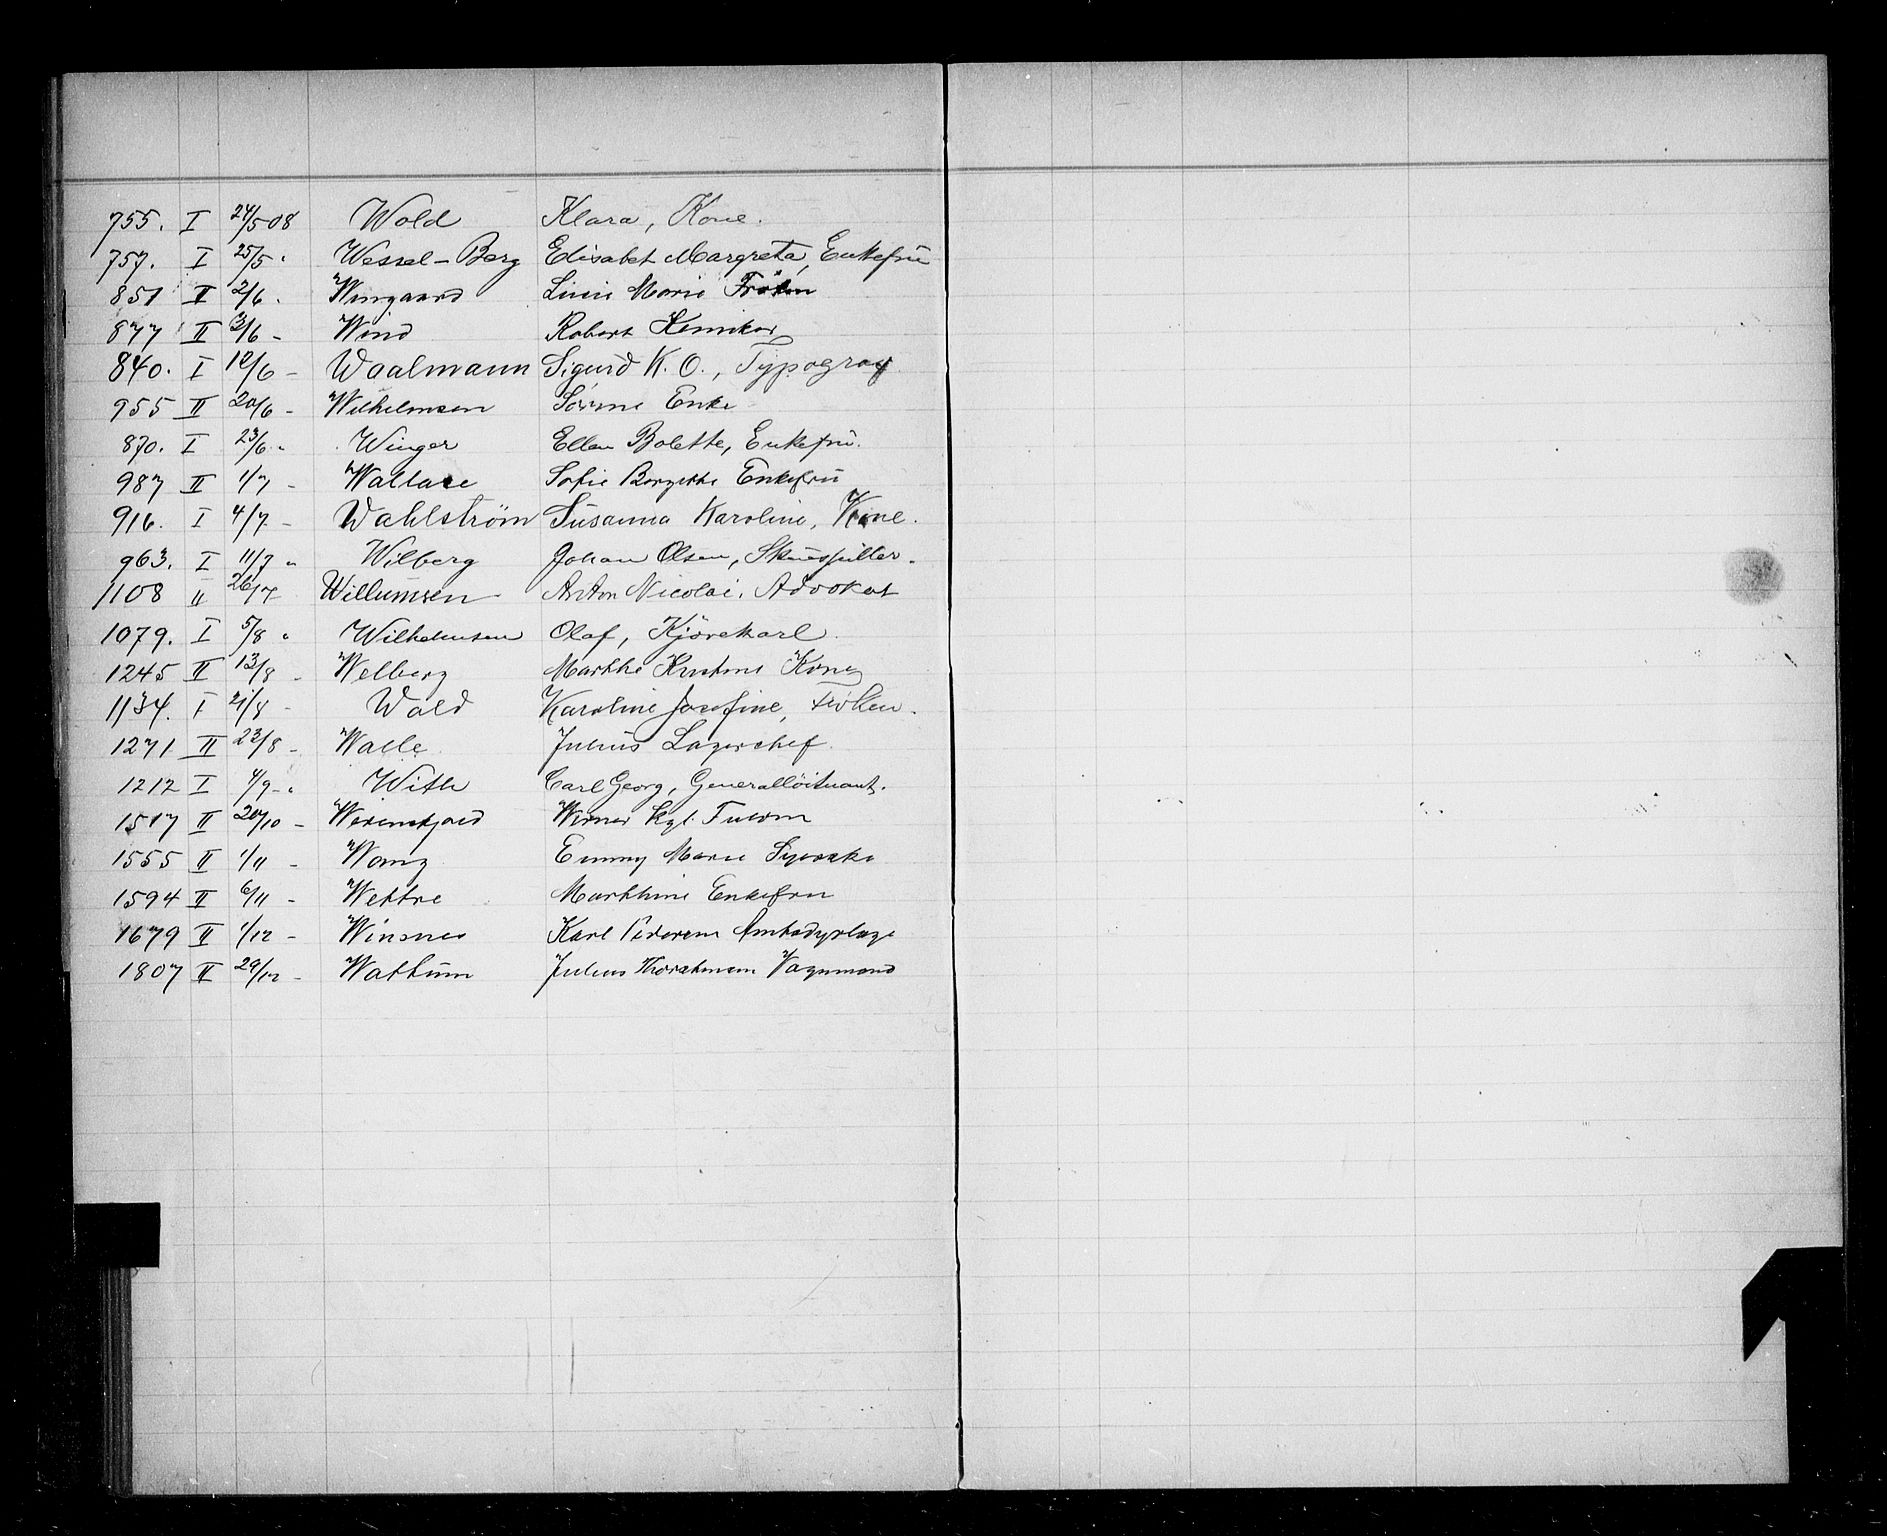 755. I 24/5 08 Wold Klara, Kone.
757. I 25/5 " Wessel-Berg Elisabet Margreta, Enkefru
851 II 2/6 . Wingaard Marie Frøken
877 II 3/6 - Wind Robert Kemiker
840. I 10/6 - Waalmann Sigurd K. O., Typograf
955 II 20/6 - Wilhelmsen Enke
870. I 23/6 " Winger Ellen Bolette, Enkefru.
987 II 1/7 - Wallace Sofie Enkefru
916. I 4/7 - Wahlström Susanna Karoline, Kone.
963. I 11/7 " Wilberg Johan Olsen, Skuespiller.
1108 II 26/7 Willumsen Anton Nicolai, Advokat
1079. I 5/8 " Wilhelmsen Olaf, Kjørekarl
1245 II 13/8 - Welberg Marthe Kristine Kone
1134. I 21/8 - Wold Karoline Josefine, Frøken.
1271 II 23/8 - Walle Julius Lagerchef.
1212 I 4/9 - " With Carl Georg, Generalløitnant.
1517 II 20/10 - Werenskjold Werner Kgl. Fuldm
1555 II 1/11 - Wang Emmy Marie Syerske
1594 II 6/11 - Wettre Marthine Enkefru
1679 II 1/12 - Winsnes Karl Pedersen Amtsdyrlæge
1807 II 29/12 - Wattum Julius Vognmand